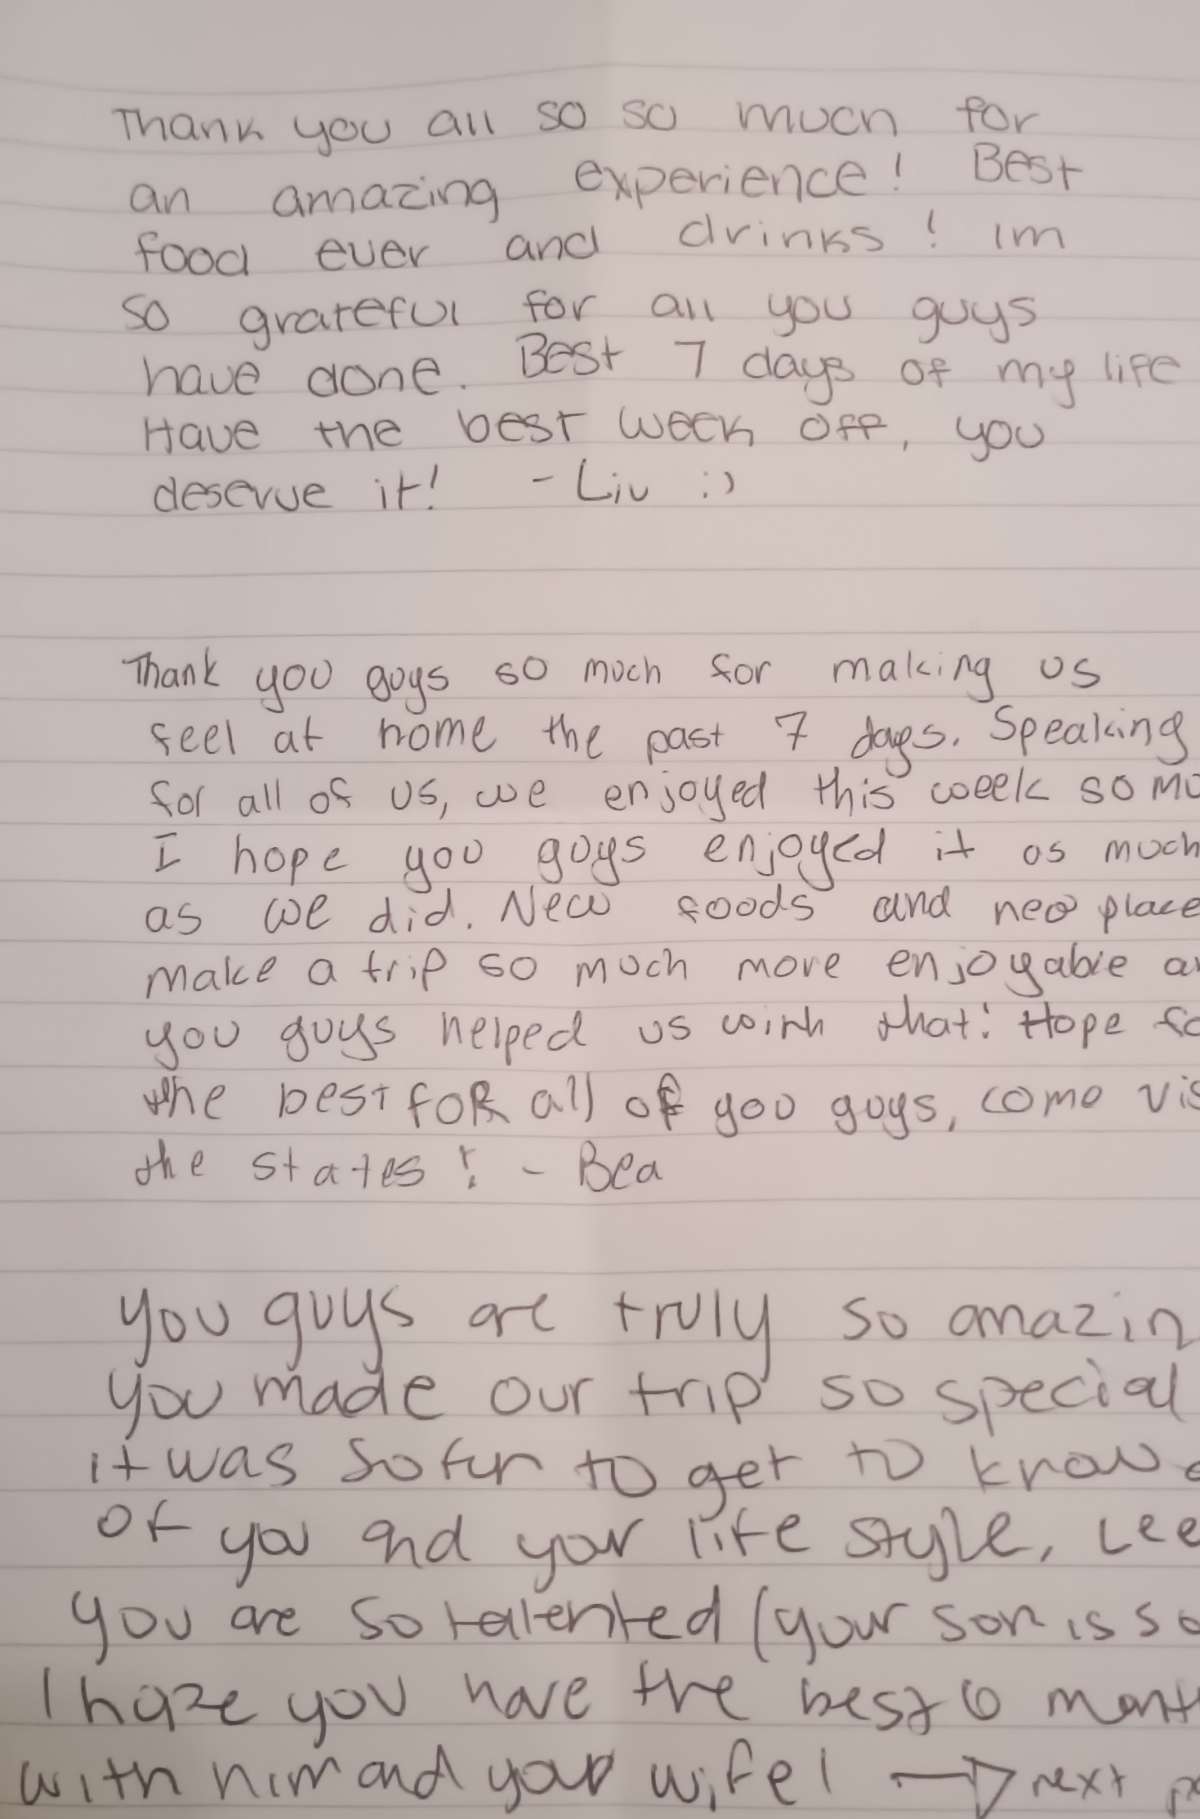 Thank you all so so much for
an amazing experience! Best
food ever and drinks! Im
so grateful for all you guys
have done. Best 7 days of my life
Have the best week off, you
deserve it! - Liv :)
Thank you guys so much for making us
feel at home the past 7 days. Speaking
for all of us, we enjoyed this week so mu
I hope you guys enjoyed it as much
as we did. New foods and new place
make a trip so much more enjoyable a
you guys helped us with that! Hope fo
the best for all of you guys, come vis
the states! - Bea
you guys are truly so amazin
you made our trip so special
it was so fun to get to know
of you and your life style, Lee
you are so talented (your son is so
I hope you have the best 6 mont
with him and your wife! → next